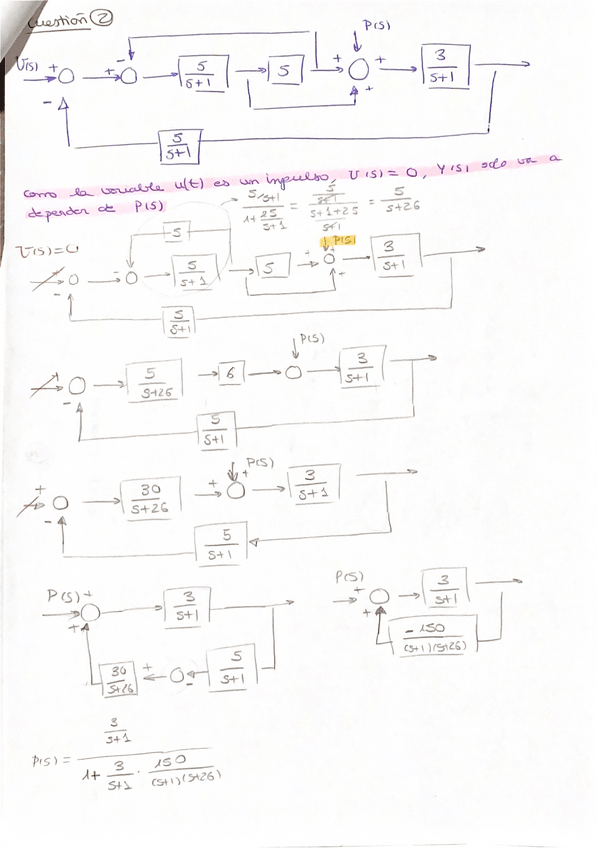 Cuestión 2
P(S)
U(S) + - + - 5/(s+1) 5 + + + 3/(s+1)
5/(s+1)
como la variable u(t) es un impulso, U(S) = 0, Y(S) solo va a
depender de P(S)
(5/s+1)/(1+25/(s+1)) = (5/(s+1))/((s+1+25)/(s+1)) = 5/(s+26)
U(S)=0
5
P(S)
- - 5/(s+1) 5 + + + 3/(s+1)
5/(s+1)
P(S)
+ - 5/(s+26) 6 3/(s+1)
5/(s+1)
P(S)
+ - 30/(s+26) + + 3/(s+1)
5/(s+1)
P(S) + + 3/(s+1)
30/(s+26) + - 5/(s+1)
P(S) + + 3/(s+1)
-150/((s+1)(s+26))
P(S) = (3/(s+1))/(1+ 3/(s+1) · 150/((s+1)(s+26)))